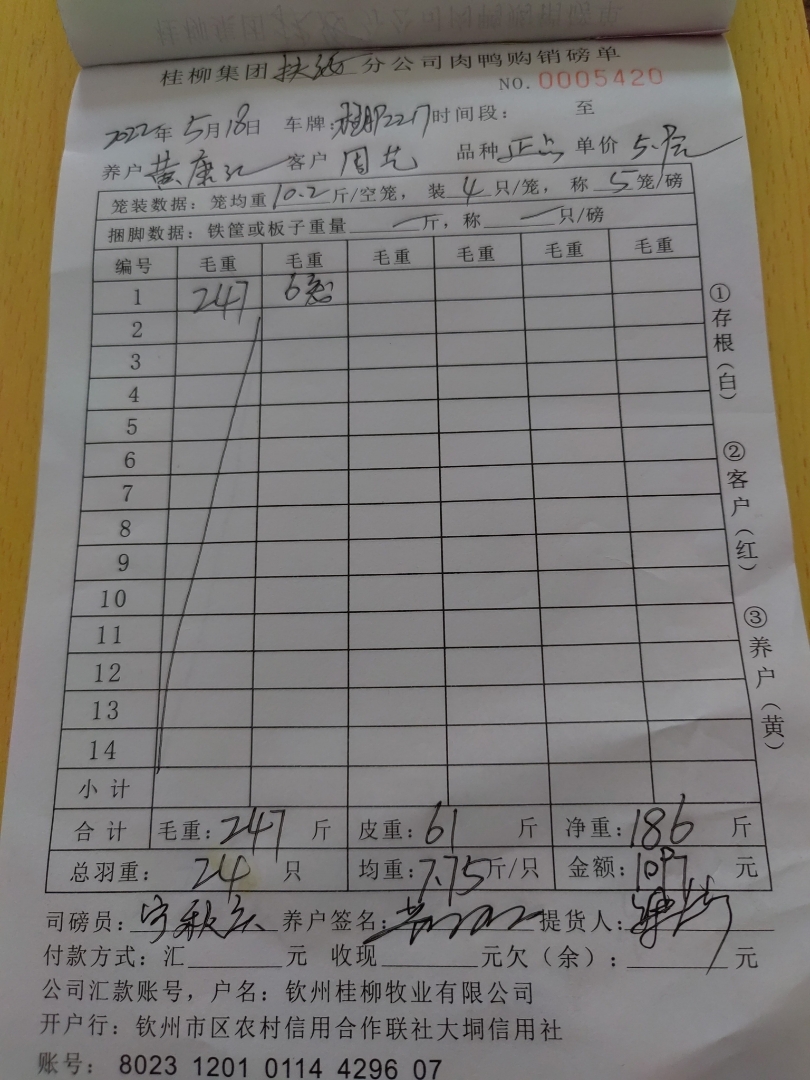 桂柳集团扶绥分公司肉鸭购销磅单
NO.0005420
2022年5月18日 车牌: 时间段: 至
养户黄康 客户周艺 品种正点 单价5.
笼装数据:笼均重10.2斤/空笼,装4只/笼,称5笼/磅
捆脚数据:铁筐或板子重量—斤,称—只/磅
编号 毛重 毛重 毛重 毛重 毛重 毛重
1 247 6
2
3
4
5
6
7
8
9
10
11
12
13
14
小计
合计 毛重:247斤 皮重:61斤 净重:186斤
总羽重:24只 均重:7.75斤/只 金额:元
司磅员: 养户签名: 提货人:
付款方式:汇 元 收现 元欠(余): 元
公司汇款账号,户名:钦州桂柳牧业有限公司
开户行:钦州市区农村信用合作联社大垌信用社
账号:8023 1201 0114 4296 07
①存根(白)
②客户(红)
③养户(黄)